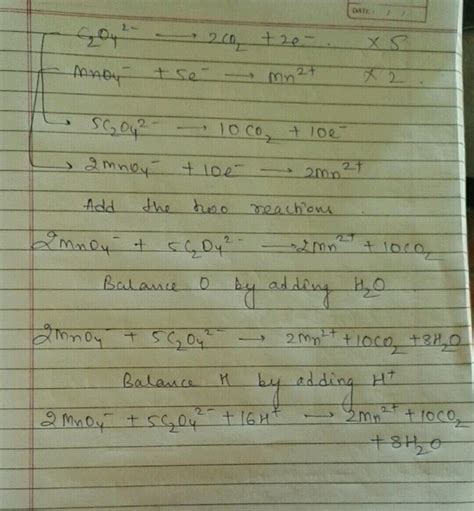 DATE: / /
C₂O₄²⁻ → 2CO₂ + 2e⁻. × 5
MnO₄⁻ + 5e⁻ → Mn²⁺ × 2.
5C₂O₄²⁻ → 10CO₂ + 10e⁻
2MnO₄⁻ + 10e⁻ → 2Mn²⁺
Add the two reactions.
2MnO₄⁻ + 5C₂O₄²⁻ → 2Mn²⁺ + 10CO₂
Balance O by adding H₂O
2MnO₄⁻ + 5C₂O₄²⁻ → 2Mn²⁺ + 10CO₂ + 8H₂O
Balance H by adding H⁺
2MnO₄⁻ + 5C₂O₄²⁻ + 16H⁺ → 2Mn²⁺ + 10CO₂
+ 8H₂O